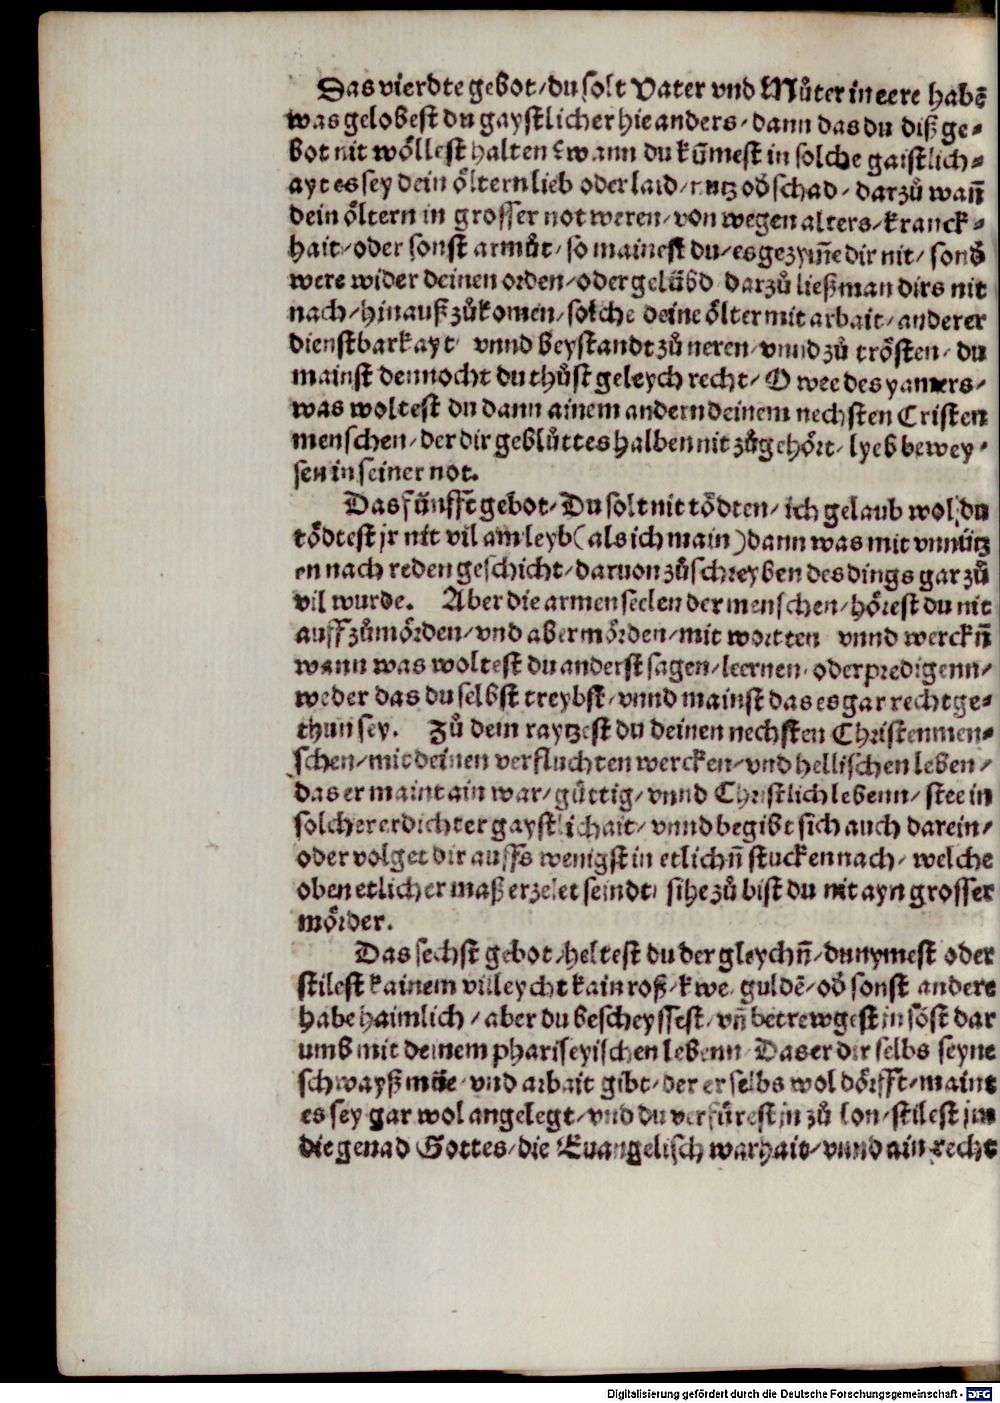 Das vierdte gebot/ du solt Vater vnd Můter in eere habē
was gelobest du gaystlicher hie anders/ dann das du diß ge⸗
bot nit wöllest halten? wann du kūmest in solche gaistlich⸗
ayt es sey dein öltern lieb oder laid/ nutz oď schad/ darzů wañ
dein öltern in grosser not weren/ von wegen alters/ kranck⸗
hait/ oder sonst armůt/ so mainest du/ es gezym̄e dir nit/ sonď
were wider deinen orden/ oder gelübd darzů ließ man dirs nit
nach/ hinauß zůkomen/ solche deine ölter mit arbait/ anderer
dienstbarkayt/ vnnd beystandt zů neren/ vnnd zů trösten/ du
mainst dennocht du thůst geleych recht/ O wee des yamers/
was woltest du dann ainem andern deinem nechsten Cristen
menschen/ der dir geblůttes halben nit zůgehört/ lyeb bewey⸗
sen in seiner not.
Das fünfft gebot/ Du solt nit tödten/ ich gelaub wol/ du
tödtest jr nit vil am leyb (als ich main) dann was mit vnnütz
en nach reden geschicht/ daruon zůschreyben des dings gar zů
vil wurde. Aber die armen seelen der menschen/ hörest du nit
auff zůmörden/ vnd aber mörden/ mit wortten vnnd werckñ
wann was woltest du anderst sagen/ leernen/ oder predigenn/
weder das du selbst treybst/ vnnd mainst das es gar recht ge⸗
thun sey. Zů dem raytzest du deinen nechsten Christenmen⸗
schen/ mit deinen verfluchten wercken/ vnd hellischen leben/
das er maint ain war/ güttig/ vnnd Christlich lebenn/ stee in
solcher erdichter gaystlichait/ vnnd begibt sich auch darein/
oder volget dir auffs wenigst in etlichñ stucken nach/ welche
oben etlicher maß erzelet seindt/ sihe zů bist du nit ayn grosser
mörder.
Das sechst gebot/ heltest du der gleychñ/ du nymest oder
stilest kainem villeycht kain roß/ kwe/ guldē/ oď sonst andere
habe haimlich/ aber du bescheyssest/ vñ betrewgest jn söst dar
umb mit deinem phariseyischen lebenn/ Das er dir selbs seyne
schwayß müe/ vnd arbait gibt/ der er selbs wol dörfft/ maint
es sey gar wol angelegt/ vnd du verfürest jn zů lon/ stilest jm
die genad Gottes/ die Euangelisch warhait/ vnnd ain recht
Digitalisierung gefördert durch die Deutsche Forschungsgemeinschaft - DFG